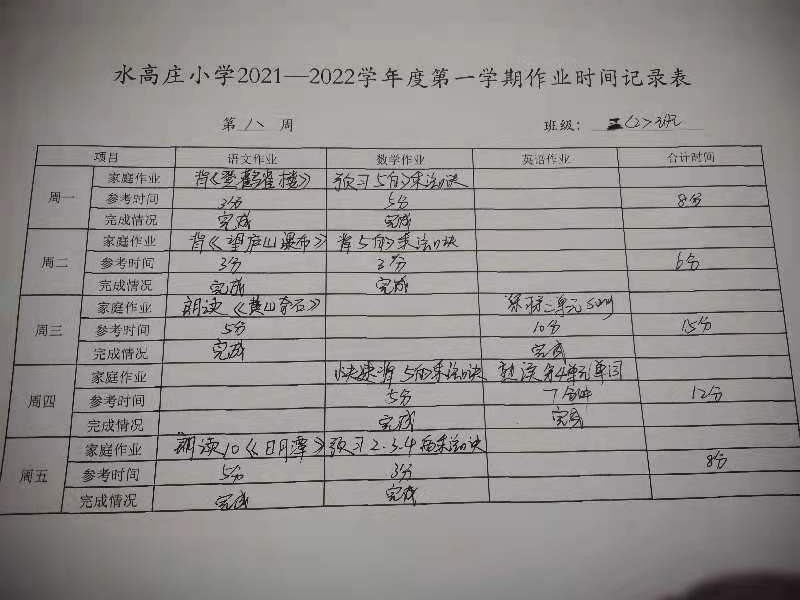 水高庄小学2021—2022学年度第一学期作业时间记录表
第 八 周 班级： 二（2）班
项目 语文作业 数学作业 英语作业 合计时间
周一 家庭作业 背《登鹳雀楼》 预习5的乘法口诀
参考时间 3分 5分 8分
完成情况 完成 完成
周二 家庭作业 背《望庐山瀑布》 背5的乘法口诀
参考时间 3分 3分 6分
完成情况 完成 完成
周三 家庭作业 朗读《黄山奇石》 三单元song
参考时间 5分 10分 15分
完成情况 完成 完成
周四 家庭作业 快速背5的乘法口诀 熟读第4单元单词
参考时间 5分 7分钟 12分
完成情况 完成 完成
周五 家庭作业 朗读10《日月潭》 预习2.3.4的乘法口诀
参考时间 5分 3分 8分
完成情况 完成 完成